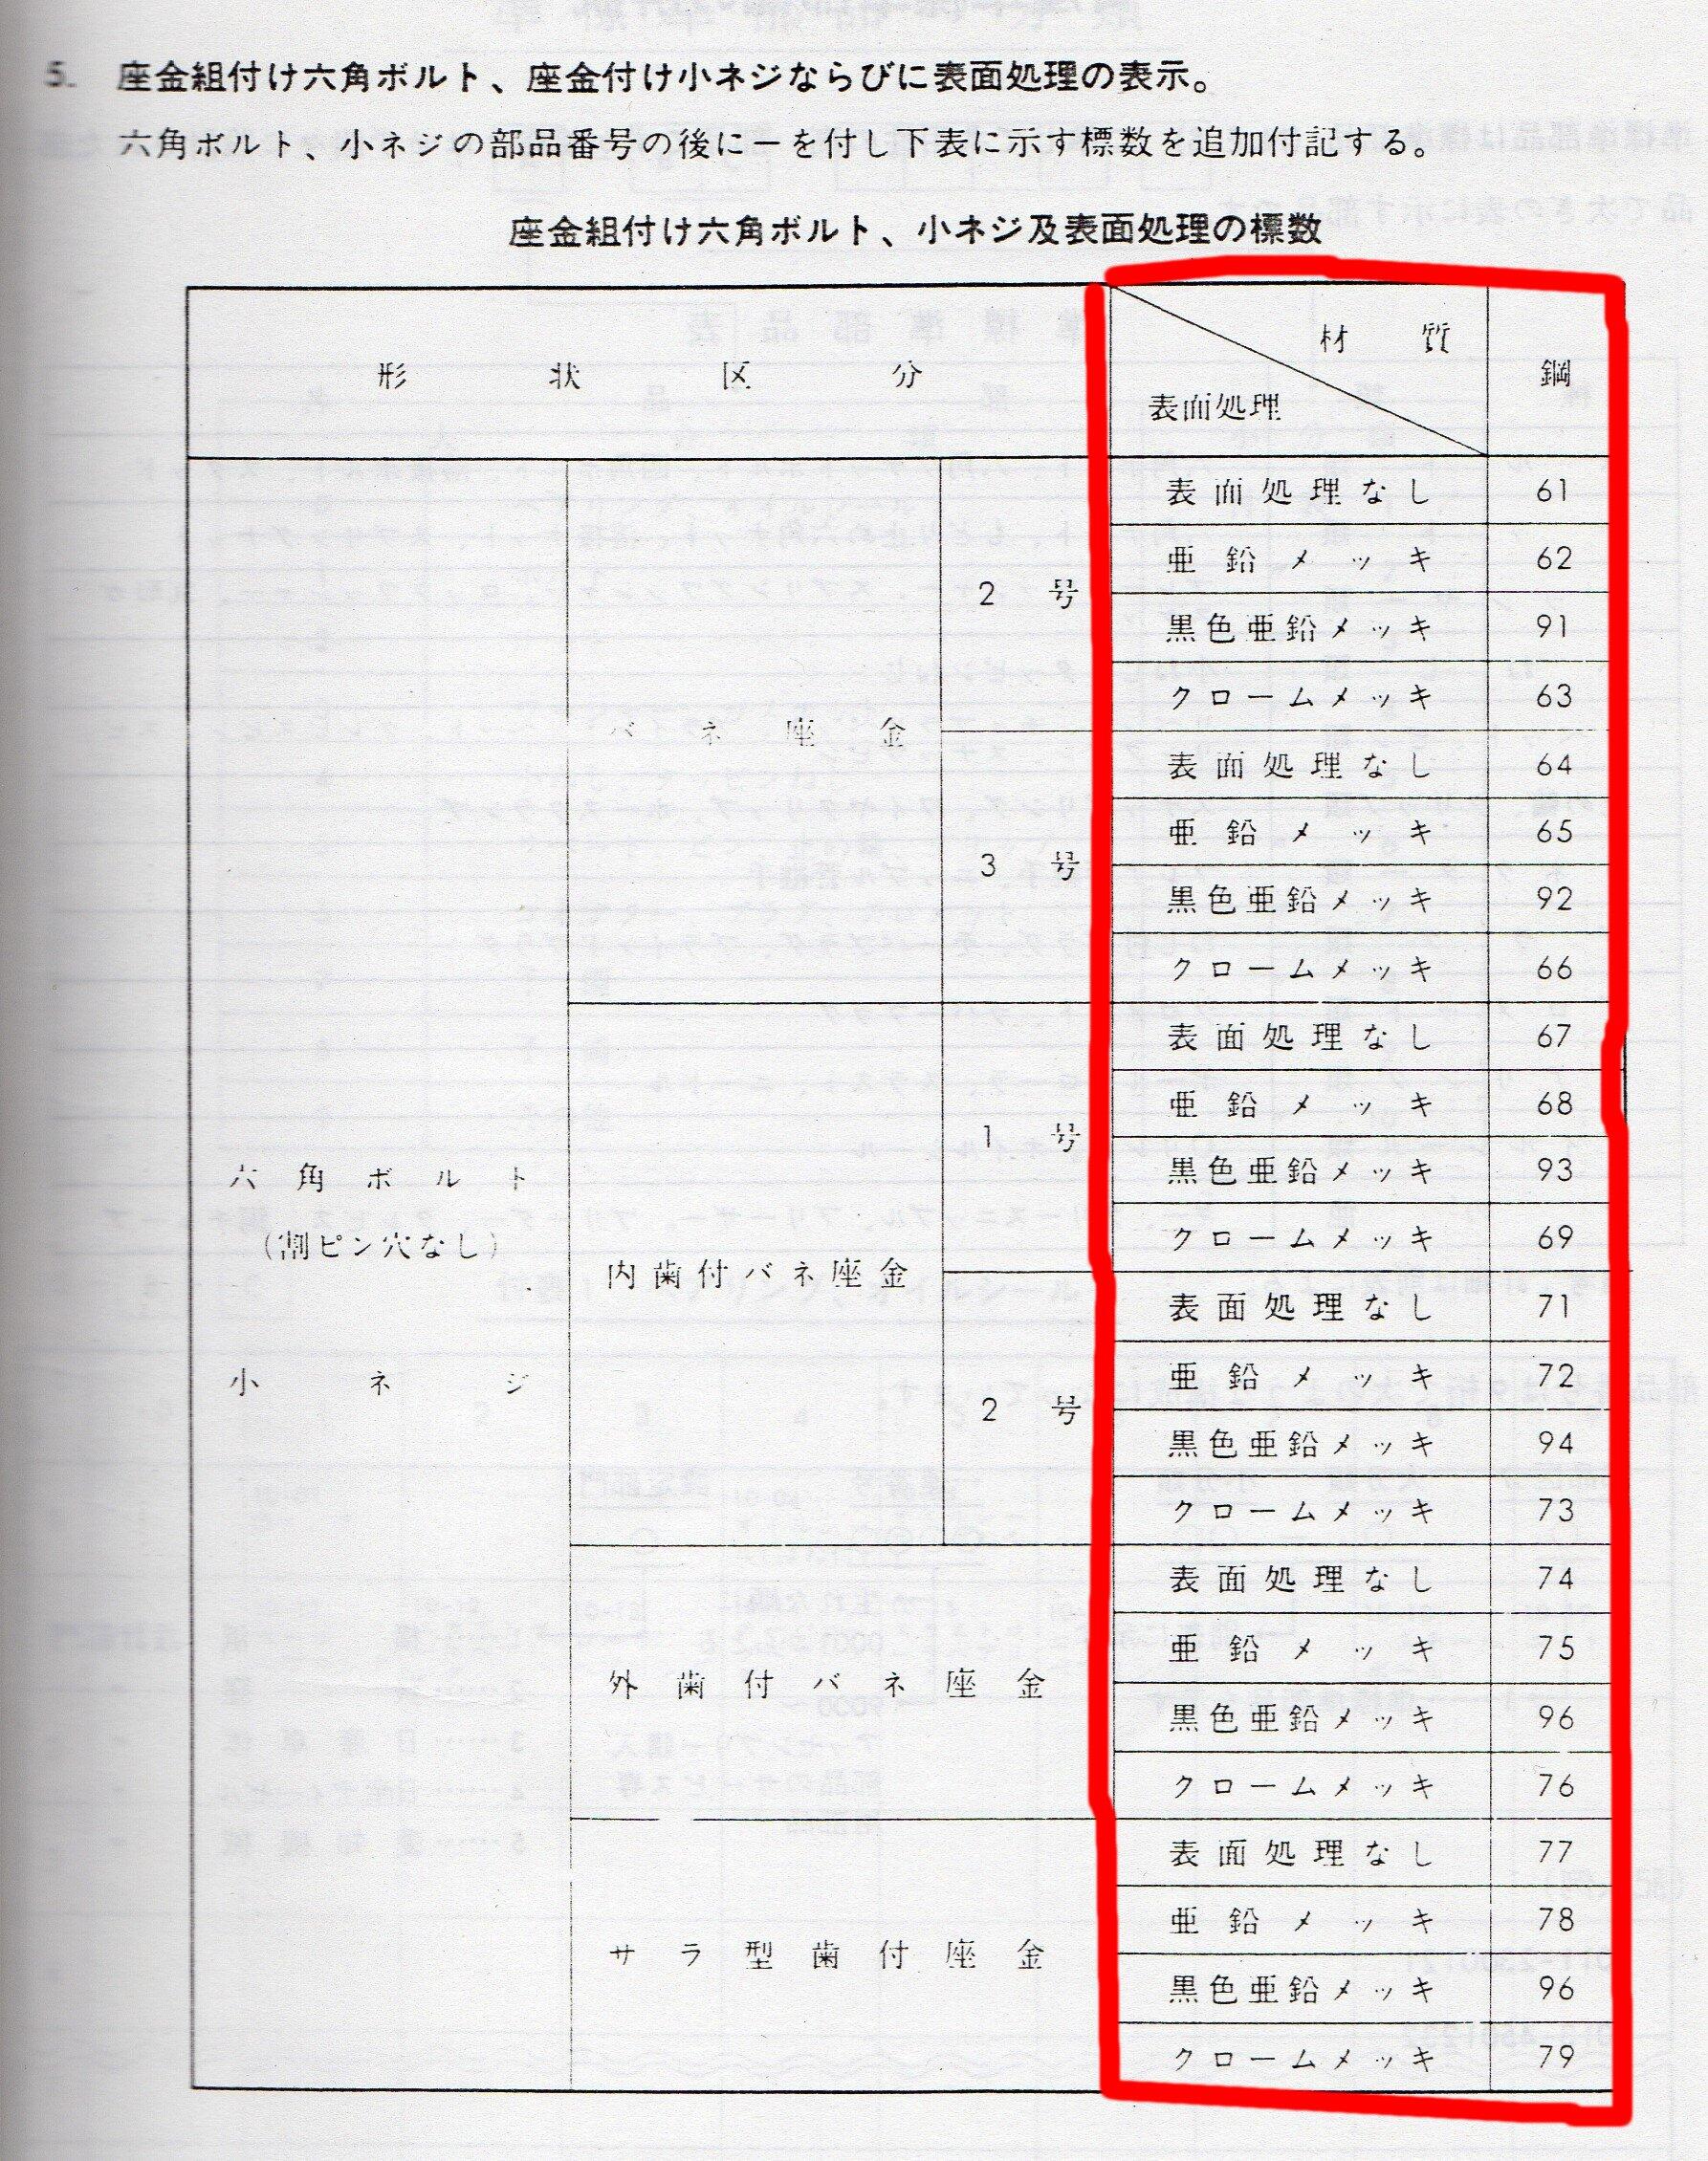 5. 座金組付け六角ボルト、座金付け小ネジならびに表面処理の表示。
六角ボルト、小ネジの部品番号の後にーを付し下表に示す標数を追加付記する。
座金組付け六角ボルト、小ネジ及表面処理の標数
形状区分
材質
表面処理
鋼
六角ボルト
(割ピン穴なし)
小ネジ
バネ座金
2号
表面処理なし 61
亜鉛メッキ 62
黒色亜鉛メッキ 91
クロームメッキ 63
3号
表面処理なし 64
亜鉛メッキ 65
黒色亜鉛メッキ 92
クロームメッキ 66
内歯付バネ座金
1号
表面処理なし 67
亜鉛メッキ 68
黒色亜鉛メッキ 93
クロームメッキ 69
2号
表面処理なし 71
亜鉛メッキ 72
黒色亜鉛メッキ 94
クロームメッキ 73
外歯付バネ座金
表面処理なし 74
亜鉛メッキ 75
黒色亜鉛メッキ 96
クロームメッキ 76
サラ型歯付座金
表面処理なし 77
亜鉛メッキ 78
黒色亜鉛メッキ 96
クロームメッキ 79